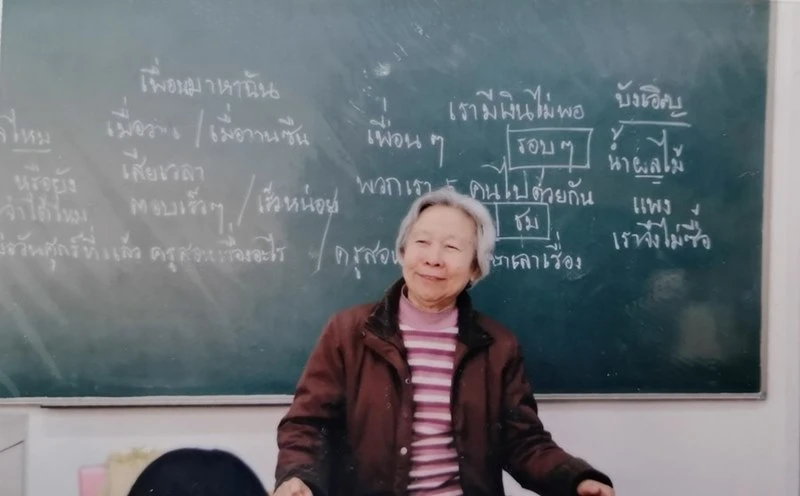 เพื่อนมาหาฉัน
ไหม เมื่อวาน / เมื่อวานซืน
หรือยัง เสียเวลา
จำได้ไหม ตอบเร็วๆ / เร็วหน่อย
วันศุกร์ที่แล้ว ครูสอนเรื่องอะไร / ครูสอน เล่าเรื่อง
เรามีเงินไม่พอ
เพื่อนๆ รอบๆ
พวกเรา 5 คนไปด้วยกัน
ชม
บังเอิญ
น้ำผลไม้
แพง
เราจึงไม่ซื้อ